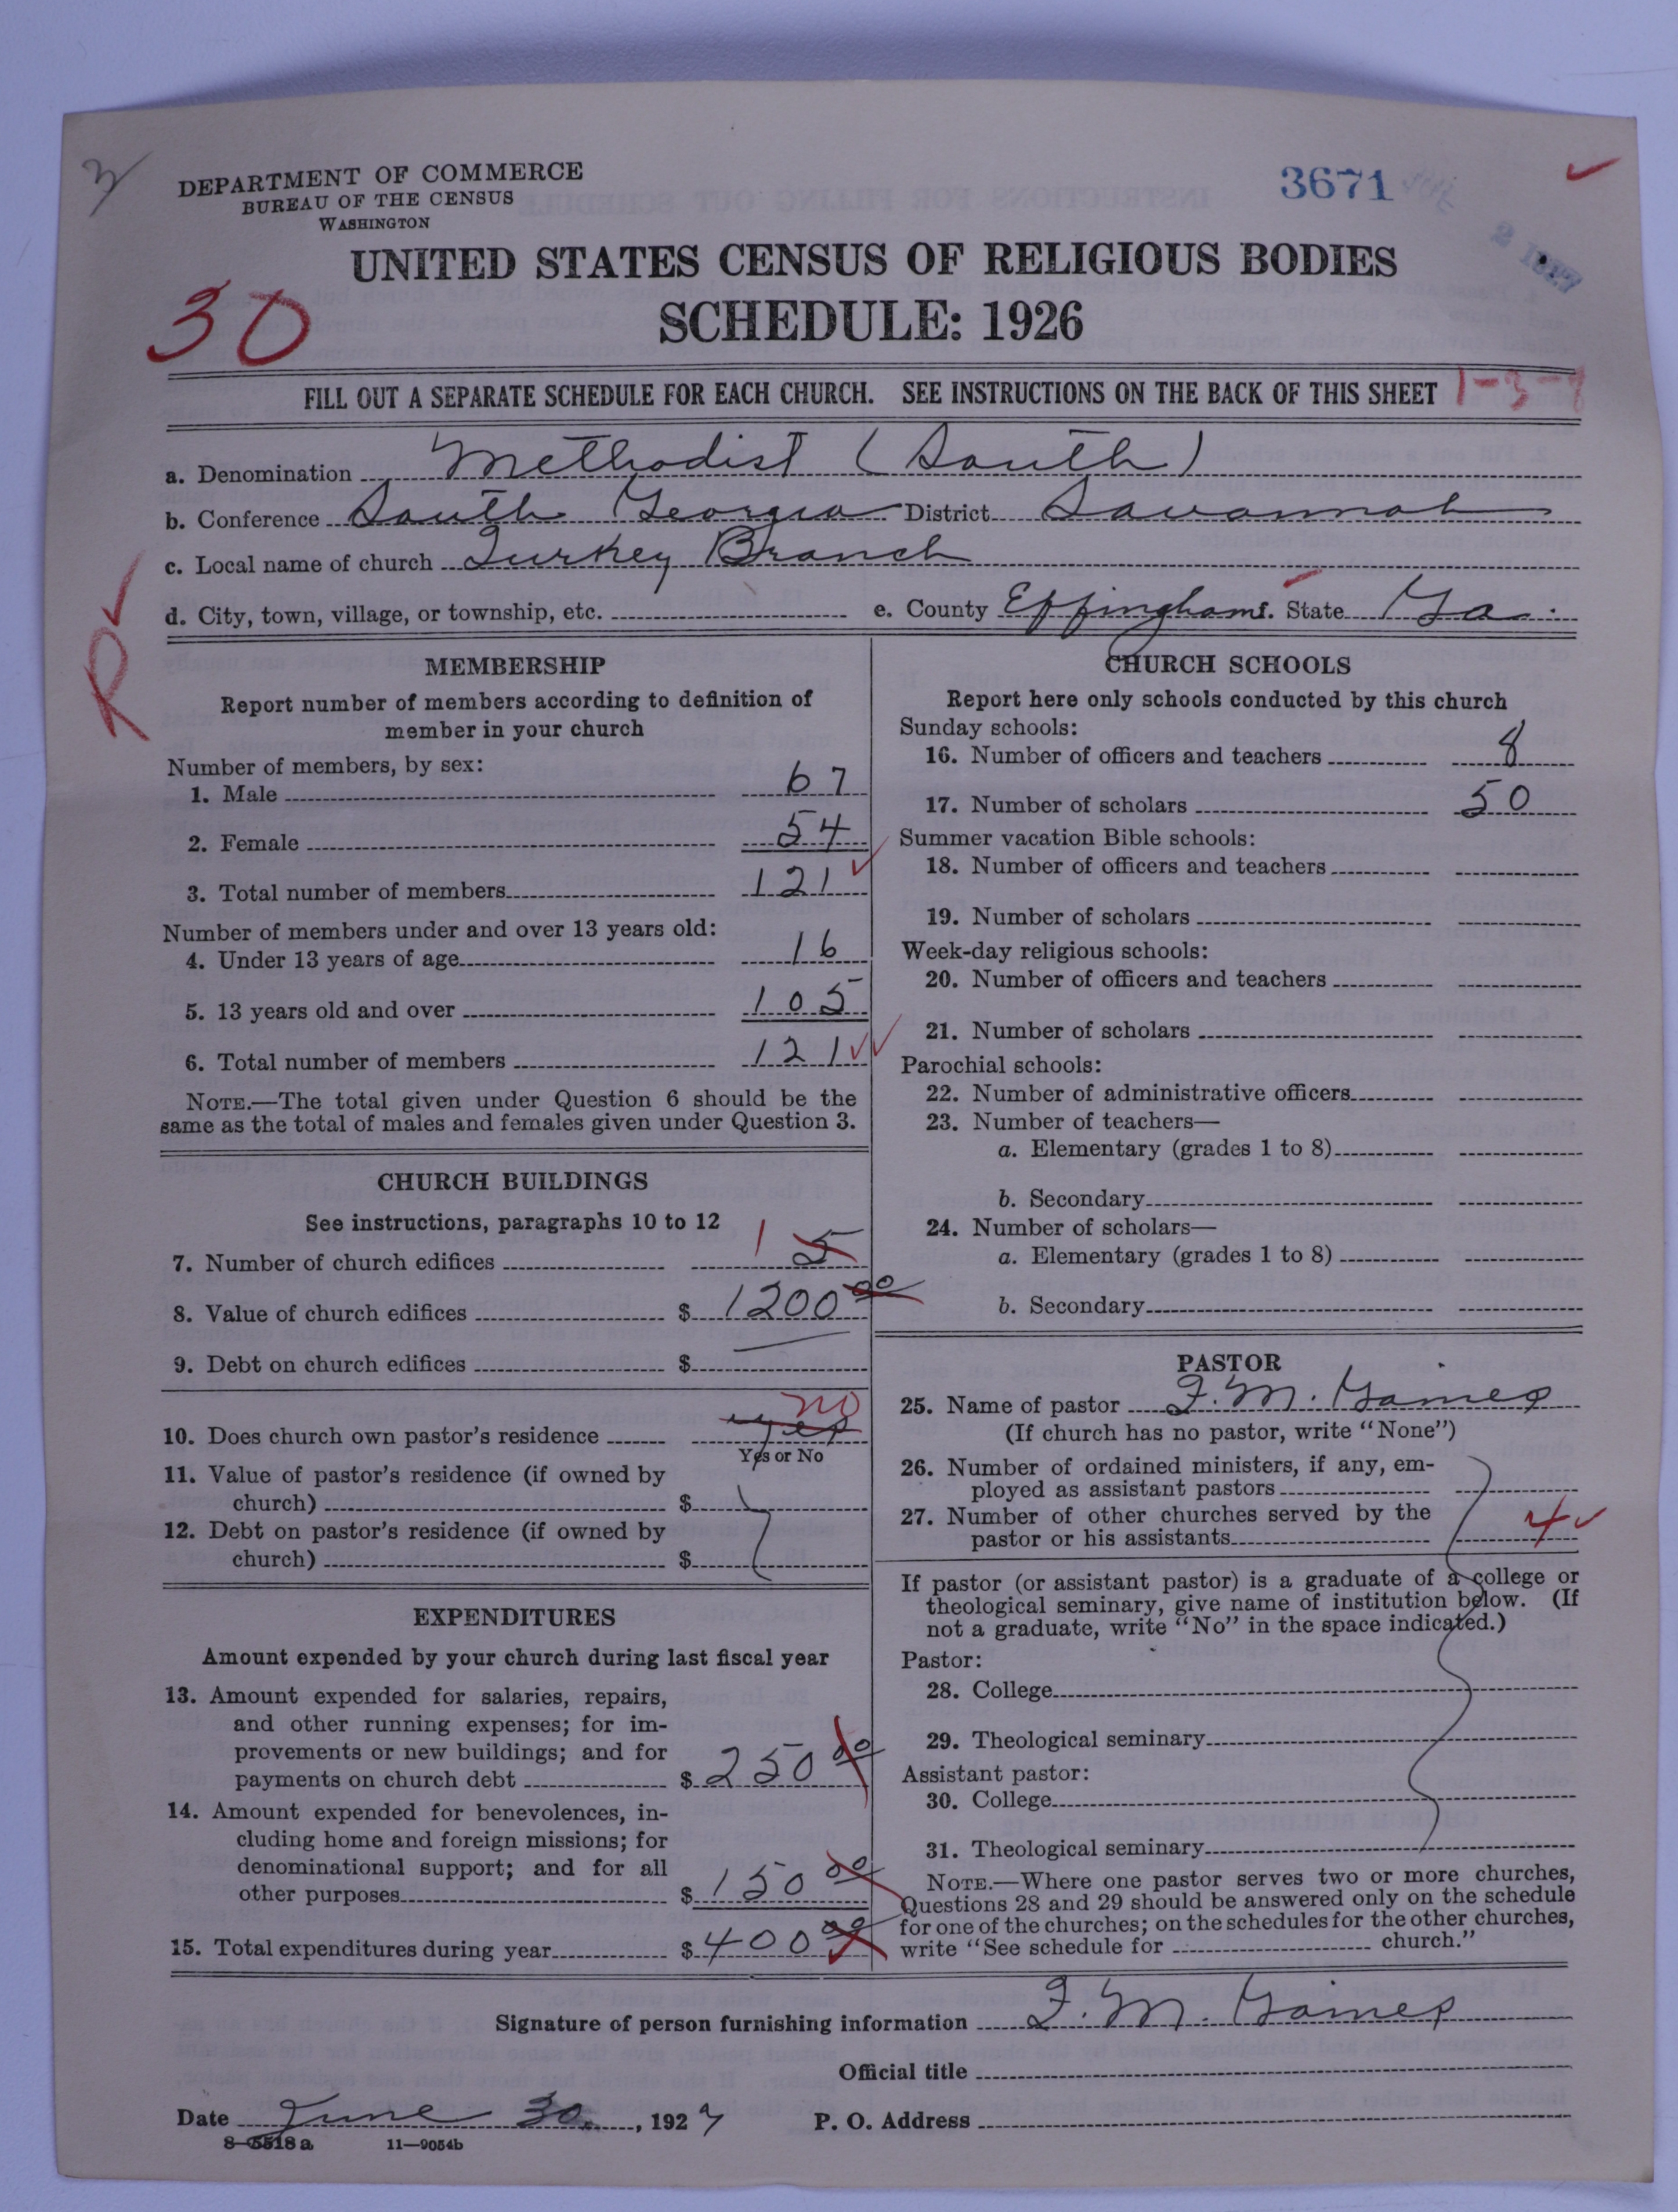 DEPARTMENT OF COMMERCE
BUREAU OF THE CENSUS
WASHINGTON
3671
2 1927
UNITED STATES CENSUS OF RELIGIOUS BODIES
30
SCHEDULE: 1926
FILL OUT A SEPARATE SCHEDULE FOR EACH CHURCH. SEE INSTRUCTIONS ON THE BACK OF THIS SHEET
a. Denomination Methodist (South)
b. Conference South Georgia District Savannah
c. Local name of church Turkey Branch
d. City, town, village, or township, etc. e. County Effingham State Ga.
R
MEMBERSHIP
Report number of members according to definition of
member in your church
Number of members, by sex:
1. Male 67
2. Female 54
3. Total number of members 121
Number of members under and over 13 years old:
4. Under 13 years of age 16
5. 13 years old and over 105
6. Total number of members 121
NOTE.—The total given under Question 6 should be the
same as the total of males and females given under Question 3.
CHURCH BUILDINGS
See instructions, paragraphs 10 to 12
7. Number of church edifices 1 5
8. Value of church edifices $ 1200 00
9. Debt on church edifices $
10. Does church own pastor's residence yes no
Yes or No
11. Value of pastor's residence (if owned by
church) $
12. Debt on pastor's residence (if owned by
church) $
EXPENDITURES
Amount expended by your church during last fiscal year
13. Amount expended for salaries, repairs,
and other running expenses; for im-
provements or new buildings; and for
payments on church debt $ 250 00
14. Amount expended for benevolences, in-
cluding home and foreign missions; for
denominational support; and for all
other purposes $ 150 00
15. Total expenditures during year $ 400 00
CHURCH SCHOOLS
Report here only schools conducted by this church
Sunday schools:
16. Number of officers and teachers 8
17. Number of scholars 50
Summer vacation Bible schools:
18. Number of officers and teachers
19. Number of scholars
Week-day religious schools:
20. Number of officers and teachers
21. Number of scholars
Parochial schools:
22. Number of administrative officers
23. Number of teachers—
a. Elementary (grades 1 to 8)
b. Secondary
24. Number of scholars—
a. Elementary (grades 1 to 8)
b. Secondary
PASTOR
25. Name of pastor F. M. Gaines
(If church has no pastor, write "None")
26. Number of ordained ministers, if any, em-
ployed as assistant pastors
27. Number of other churches served by the
pastor or his assistants 4
If pastor (or assistant pastor) is a graduate of a college or
theological seminary, give name of institution below. (If
not a graduate, write "No" in the space indicated.)
Pastor:
28. College
29. Theological seminary
Assistant pastor:
30. College
31. Theological seminary
NOTE.—Where one pastor serves two or more churches,
Questions 28 and 29 should be answered only on the schedule
for one of the churches; on the schedules for the other churches,
write "See schedule for church."
Signature of person furnishing information F. M. Gaines
Official title
Date June 30, 1927 P. O. Address
8—5518 a 11—9054b